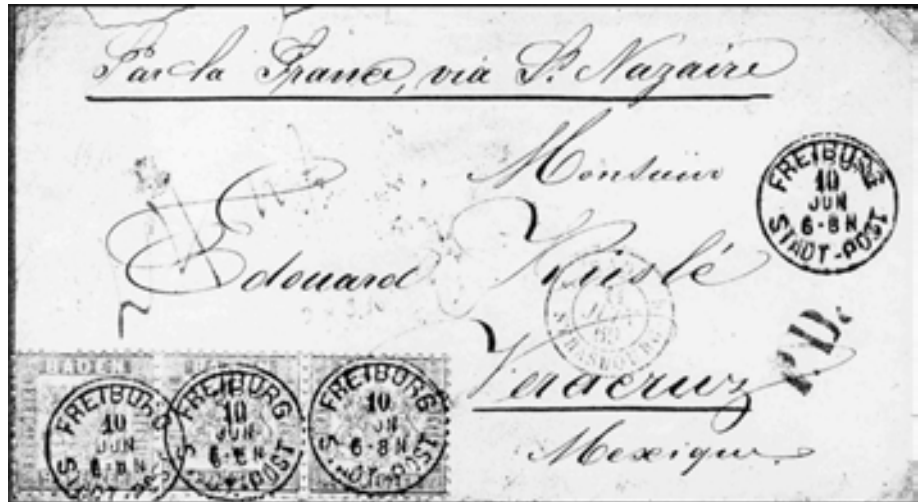 Par la France, via St. Nazaire
Monsieur
Edouard
Veracruz
Mexique
FREIBURG
10
JUN
6-8N
STADT-POST
P.D.
BADEN
FREIBURG
10
JUN
6-8N
STADT-POST
FREIBURG
10
JUN
6-8N
STADT-POST
FREIBURG
10
JUN
6-8N